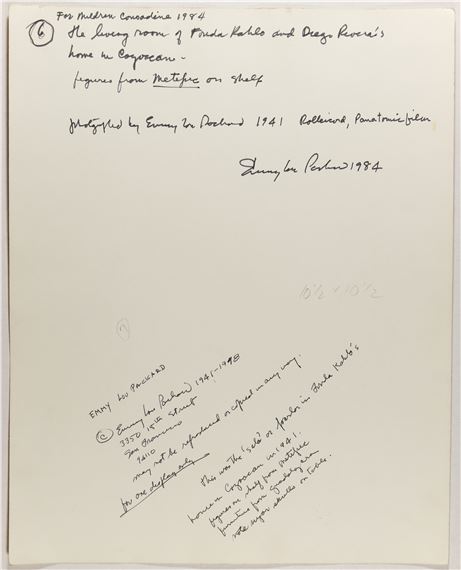 For Mildred Constadine 1984
6 The living room of Frida Kahlo and Diego Rivera's
home in Coyoacan -
figures from Metepec on shelf
photographed by Emmy Lou Packard 1941 Rolleicord, Panatomic film
Emmy Lou Packard 1984
10½ x 10½
EMMY LOU PACKARD
© Emmy Lou Packard 1941-1978
3350 18th Street
San Francisco
94110
may not be reproduced or copied in any way.
for one display only
This was the "sala" or parlor in Frida Kahlo's
house in Coyoacan in 1941.
figures on shelf from Metepec
furniture from Guadalajara
note sugar skulls on table.